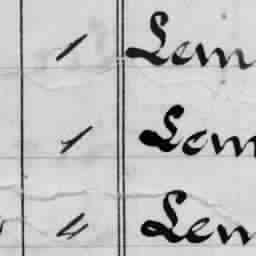 1 Lem
1 Lem
4 Lem